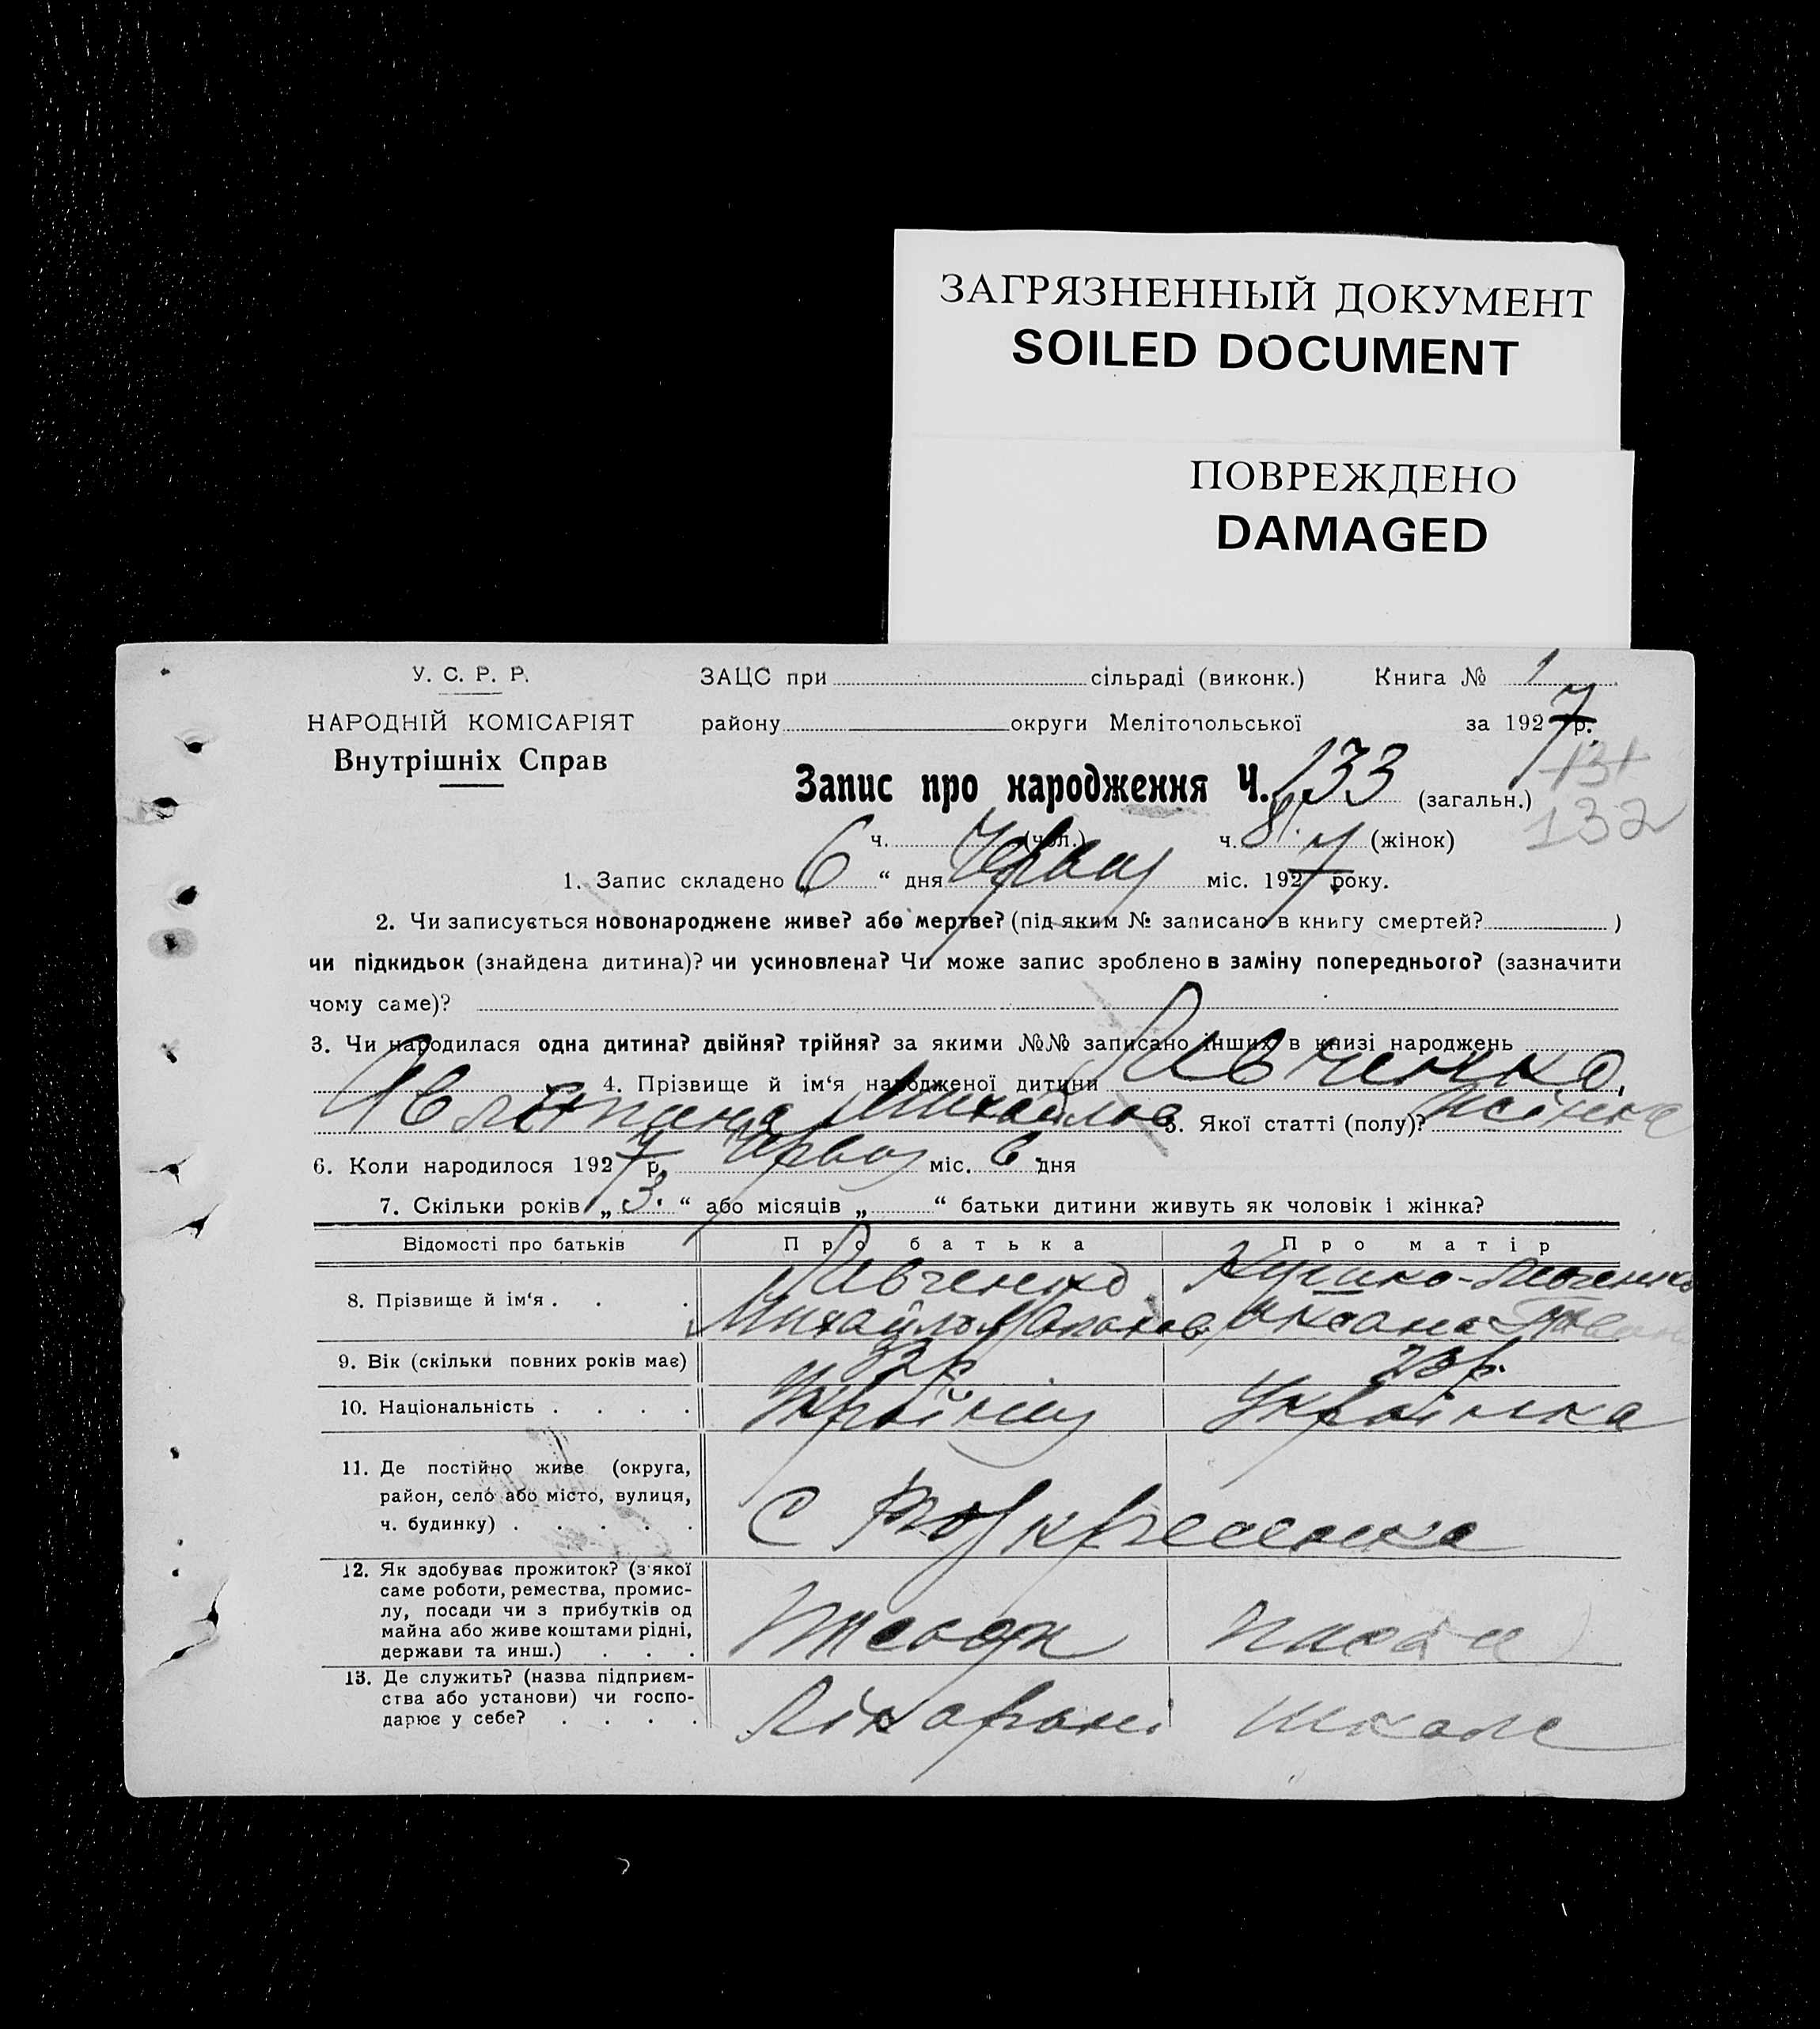 ЗАГРЯЗНЕННЫЙ ДОКУМЕНТ
SOILED DOCUMENT
ПОВРЕЖДЕНО
DAMAGED
У. С. Р. Р.
НАРОДНІЙ КОМІСАРІЯТ
Внутрішніх Справ
ЗАЦС при сільраді (виконк.) Книга № 1
району округи Мелітопольської за 1927 р.
Запис про народження Ч. 133 (загальн.)
132
ч. (чол.) ч. 81 (жінок)
1. Запис складено „6“ дня Червця міс. 1927 року.
2. Чи записується новонароджене живе? або мертве? (під яким № записано в книгу смертей? )
чи підкидьок (знайдена дитина)? чи усиновлена? Чи може запис зроблено в заміну попереднього? (зазначити
чому саме)?
3. Чи народилася одна дитина? двійня? трійня? за якими №№ записано інших в книзі народжень
4. Прізвище й ім‘я народженої дитини Лівченко
Михайлов 5. Якої статті (полу)? жіноча
6. Коли народилося 1927 р. Червця міс. 6 дня
7. Скільки років „3“ або місяців „ “ батьки дитини живуть як чоловік і жінка?
Відомості про батьків Про батька Про матір
8. Прізвище й ім‘я . . . Лівченко Михайло Лівченко Оксана
9. Вік (скільки повних років має) 32 р 23 р.
10. Національність . . . . Українец Українка
11. Де постійно живе (округа,
район, село або місто, вулиця,
ч. будинку) . . . . . С
12. Як здобуває прожиток? (з'якої
саме роботи, ремества, промис-
лу, посади чи з прибутків од
майна або живе коштами рідні,
держави та инш.) . . .
13. Де служить? (назва підприєм-
ства або установи) чи госпо-
дарює у себе? . . . . Лікарані Школе